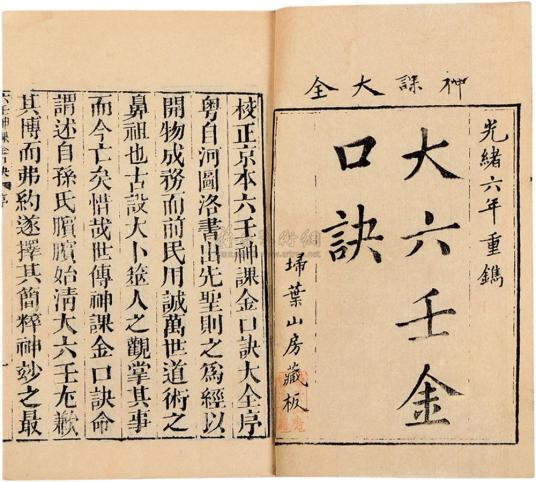 神課大全
光緒六年重鐫
大六壬金
口訣
埽葉山房藏板
校正京本六壬神課金口訣大全序
粵自河圖洛書出先聖則之爲經以
開物成務而前民用誠萬世道術之
鼻祖也古設大卜筮人之觀掌其事
而今亡矣惜哉世傳神課金口訣命
謂述自孫氏臏臏始清大六壬尤歎
其博而弗約遂擇其簡粹神玅之最
六壬神課金口訣 序